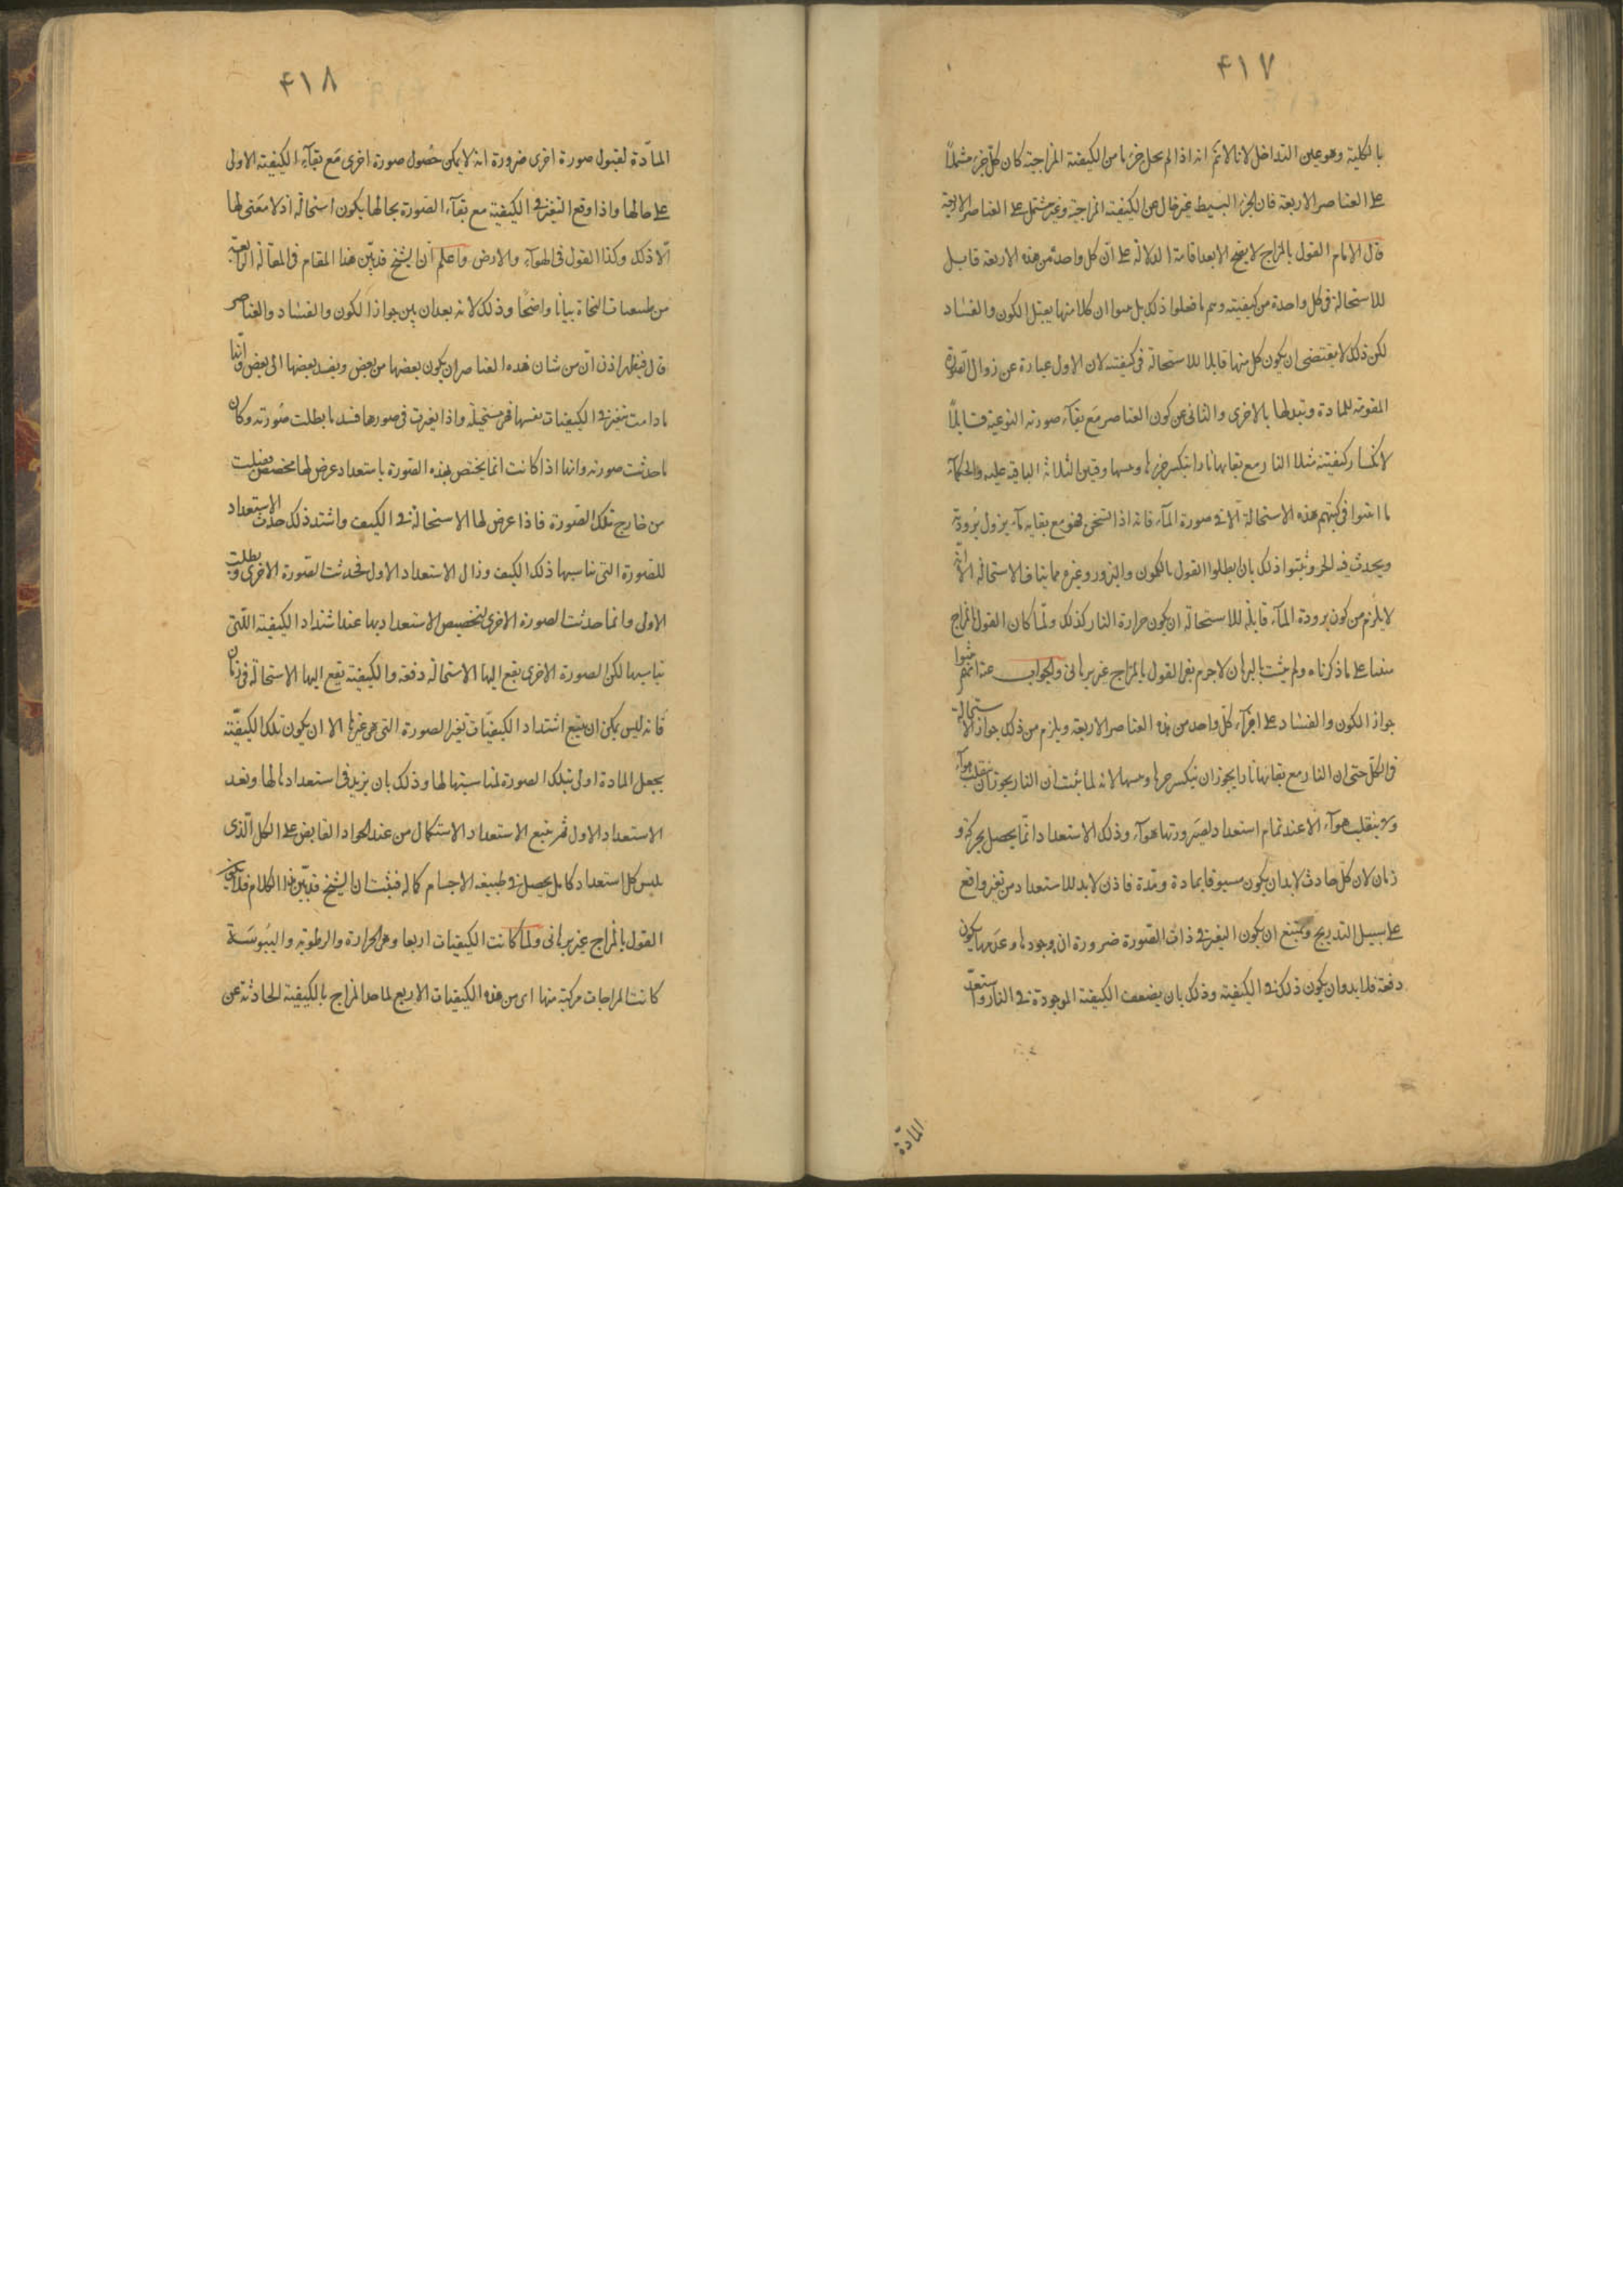 ۴۱۷
بالكلية وهو عين التداخل لانا لانم انه اذا لم يخل جزء ما من الكيفية المزاجية كان كل جزء مشتملاً
على العناصر الاربعة فان الجزء البسيط غير خال عن الكيفية المزاجية وغير مشتمل على العناصر الاربعة
قال الامام القول بالمزاج لا يصح الا بعد اقامة الدلالة على ان كل واحد من هذه الاربعة قابل
للاستحالة فى كل واحدة من كيفيته وهم ما فعلوا ذلك بل بينوا ان كلا منها يقبل الكون والفساد
لكن ذلك لا يقتضى ان يكون كل منها قابلا للاستحالة فى كيفيته لان الاول عبارة عن زوال الصورة
المقومة للمادة وتبدلها بالاخرى والثانى عن كون العناصر مع بقاء صورته النوعية قابلاً
لانكسار كيفيته مثلا النار مع بقائها نارا ينكسر حرها ويبسها وقس الثلاثة الباقية عليه والحكماء
ما اثبتوا فى كتبهم هذه الاستحالة الا فى صورة الماء فانه اذا تسخن فهو مع بقائه ماء يزول برودته
ويحدث فيه الحر وثبتوا ذلك بان بطلوا القول بالكمون والبزور وغيره مما ينافى الاستحالة الا انه
لا يلزم من كون برودة الماء قابلة للاستحالة ان يكون حرارة النار كذلك ولما كان القول بالمزاج
مبنيا على ما ذكرناه ولم يثبت بالبرهان لا جرم بقى القول بالمزاج غير برهانى والجواب عنه انهم بينوا
جواز الكون والفساد على اجزاء كل واحد من هذه العناصر الاربعة ويلزم من ذلك جواز الاستحالة
فى الكل حتى ان النار مع بقائها نارا يجوز ان ينكسر حرها ويبسها لانه لما ثبت ان النار يجوز ان ينقلب هواء
ولا ينقلب هواء الا عند تمام استعداد لصيرورتها هواء وذلك الاستعداد انما يحصل بحركة و
زمان لان كل حادث لابد ان يكون مسبوقا بمادة ومدة فاذن لابد للاستعداد من تغير واقع
على سبيل التدريج ويمتنع ان يكون التغير فى ذات الصورة ضرورة ان وجودها وعدمها يكون
دفعة فلابد وان يكون ذلك فى الكيفية وذلك بان يضعف الكيفية الموجودة فى النار واستعد
المادة
۴۱۸
المادة لقبول صورة اخرى ضرورة انه لا يمكن حصول صورة اخرى مع بقاء الكيفية الاولى
على حالها واذا وقع التغير فى الكيفية مع بقاء الصورة بحالها يكون استحالة اذ لا معنى لها
الا ذلك وكذا القول فى الهواء والارض واعلم ان الشيخ قد بين هذا المقام فى المقالة الرابعة
من طبيعيات النجاة بيانا واضحا وذلك لانه بعد ان بين جواز الكون والفساد والعناصر
قال فيظهر اذن ان من شان هذه العناصر ان يكون بعضها من بعض ويفسد بعضها الى بعض وانها
ما دامت تتغير فى الكيفيات نفسها فهى مستحيلة واذا تغيرت فى صورها فسد ما بطلت صورته وكان
ما حدثت صورته وانها اذا كانت انما يختص بهذه الصورة باستعداد عرض لها مخصص فقبلت
من خارج تلك الصورة فاذا عرض لها الاستحالة فى الكيف واشتد ذلك حدث الاستعداد
للصورة التى تناسبها ذلك الكيف وزال الاستعداد الاول فحدثت الصورة الاخرى وبطلت
الاولى وانما حدثت الصورة الاخرى لتخصيص الاستعداد بها عند اشتداد الكيفية اللتى
تناسبها لكن الصورة الاخرى يقع اليها الاستحالة دفعة والكيفية يقع اليها الاستحالة فى زمان
فانه ليس يمكن ان يتبع اشتداد الكيفيات تغير الصورة التى هى غيرها الا ان يكون تلك الكيفية
يجعل المادة اولى بتلك الصورة لمناسبتها لها وذلك بان يزيد فى استعدادها لها ونفد
الاستعداد الاول ثم يتبع الاستعداد الاستكمال من عند الجواد الفايض على الكل الذى
يلبس كل استعداد كامل يحصل فى طبيعة الاجسام كماله فثبت ان الشيخ قد بين هذا الكلام فلا يكون
القول بالمزاج غير برهانى ولما كانت الكيفيات اربعا وهى الحرارة والرطوبة واليبوسة
كانت المزاجات مركبة منها اى من هذه الكيفيات الاربع لما حد المزاج بالكيفية الحادثة عن